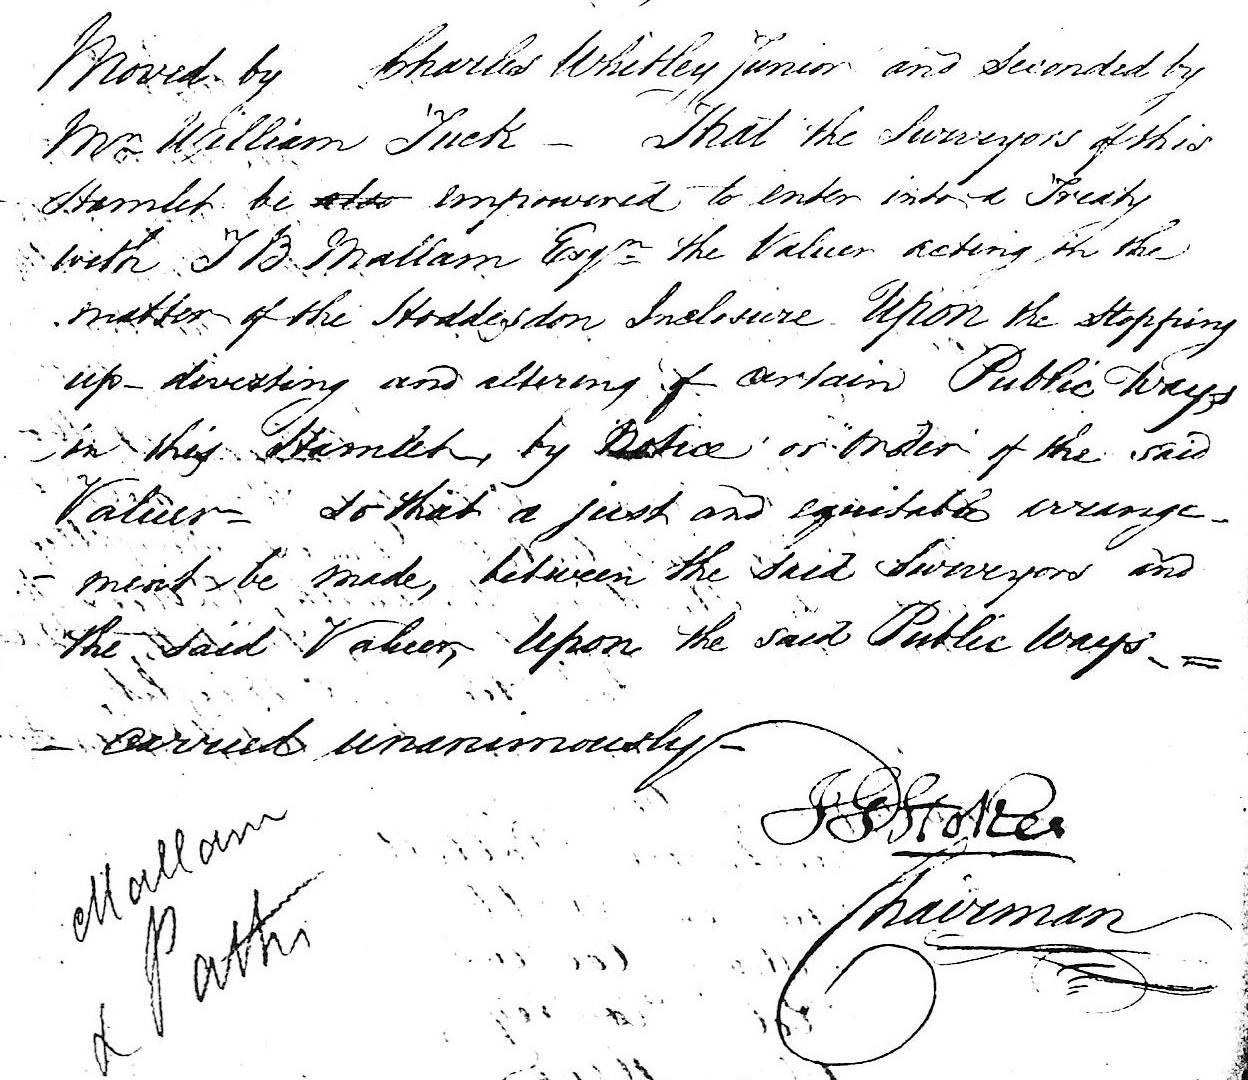 Moved by Charles Whitley Junior and Seconded by
Mr William Tuck – That the Surveyors of this
Hamlet be also empowered to enter into a Treaty
with J B Mallam Esqre the Valuer acting in the
matter of the Hoddesdon Inclosure Upon the stopping
up – diverting and altering of certain Public Ways
in this Hamlet, by Notice or Order of the said
Valuer – so that a just and equitable arrange-
-ment be made, between the said Surveyors and
the said Valuer, Upon the said Public Ways. =
– carried unanimously –
Stokes
Chairman
Mallam
& Paths